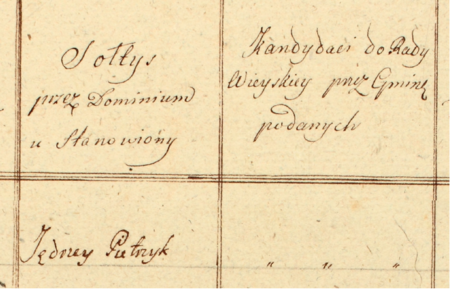 Sołtys
przez Dominium
u Stanowióny
Kandydaci do Rady
Wieyskiey przez Gminę
podanych
Jędrzey Pietrzyk
„ „ „